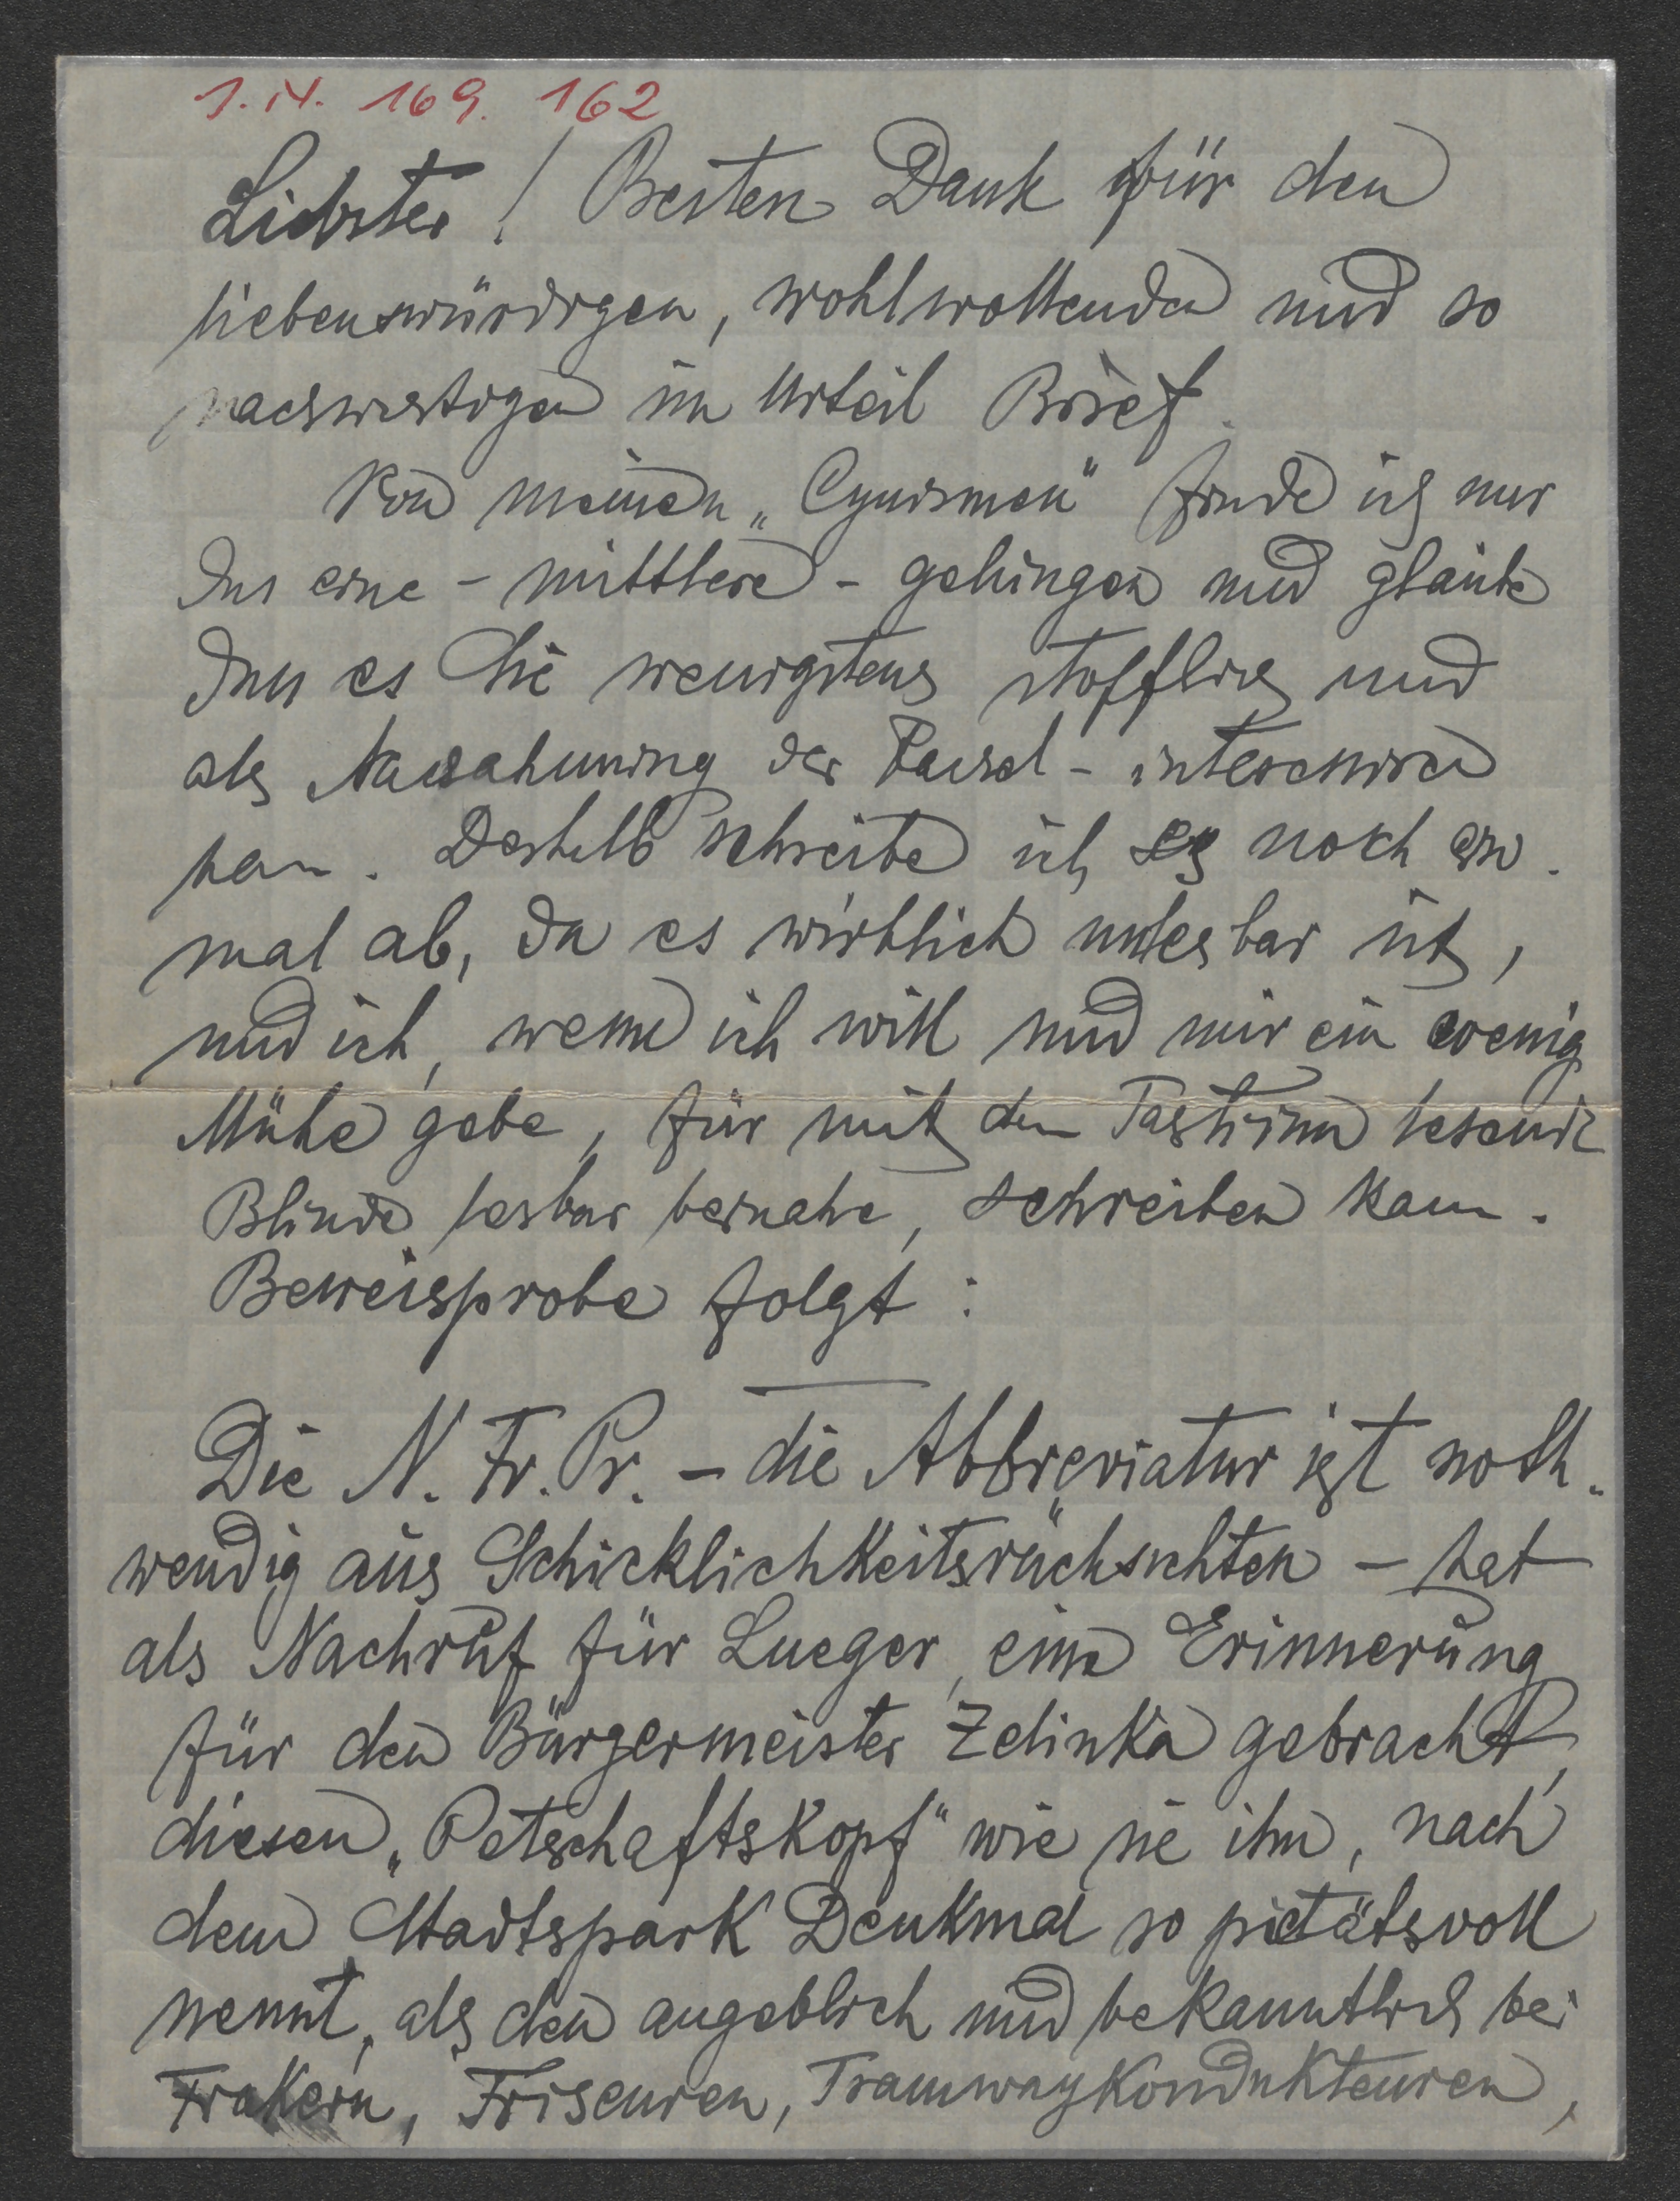 J. N. 169. 162
Liebster! Besten Dank für den
liebenswürdigen, wohlwollenden und so
nachsichtigen im Urteil Brief.
Von meinen „Cynismen" finde ich nur
das eine – mittlere – gelungen und glaube
dass es Sie wenigstens stofflich und
als Nachahmung der Fackel - interessiren
kann. Deshalb schreibe ich es noch ein.
mal ab, da es wirklich unlesbar ist,
und ich, wenn ich will und mir ein wenig
Mühe gebe, für mit dem Tastsinn lesende
Blinde lesbar beinahe, schreiben kann.
Beweisprobe folgt:
Die N. Fr. Pr. – die Abbreviatur ist noth.
wendig aus Schicklichkeitsrücksichten – hat
als Nachruf für Lueger, eine Erinnerung
für den Bürgermeister Zelinka gebracht,
diesen „Petschaftskopf" wie sie ihn, nach
dem Stadtspark Denkmal so pietätsvoll
nennt, als den angeblich und bekanntlich bei
Fiakern, Friseuren, Tramwaykondukteuren,